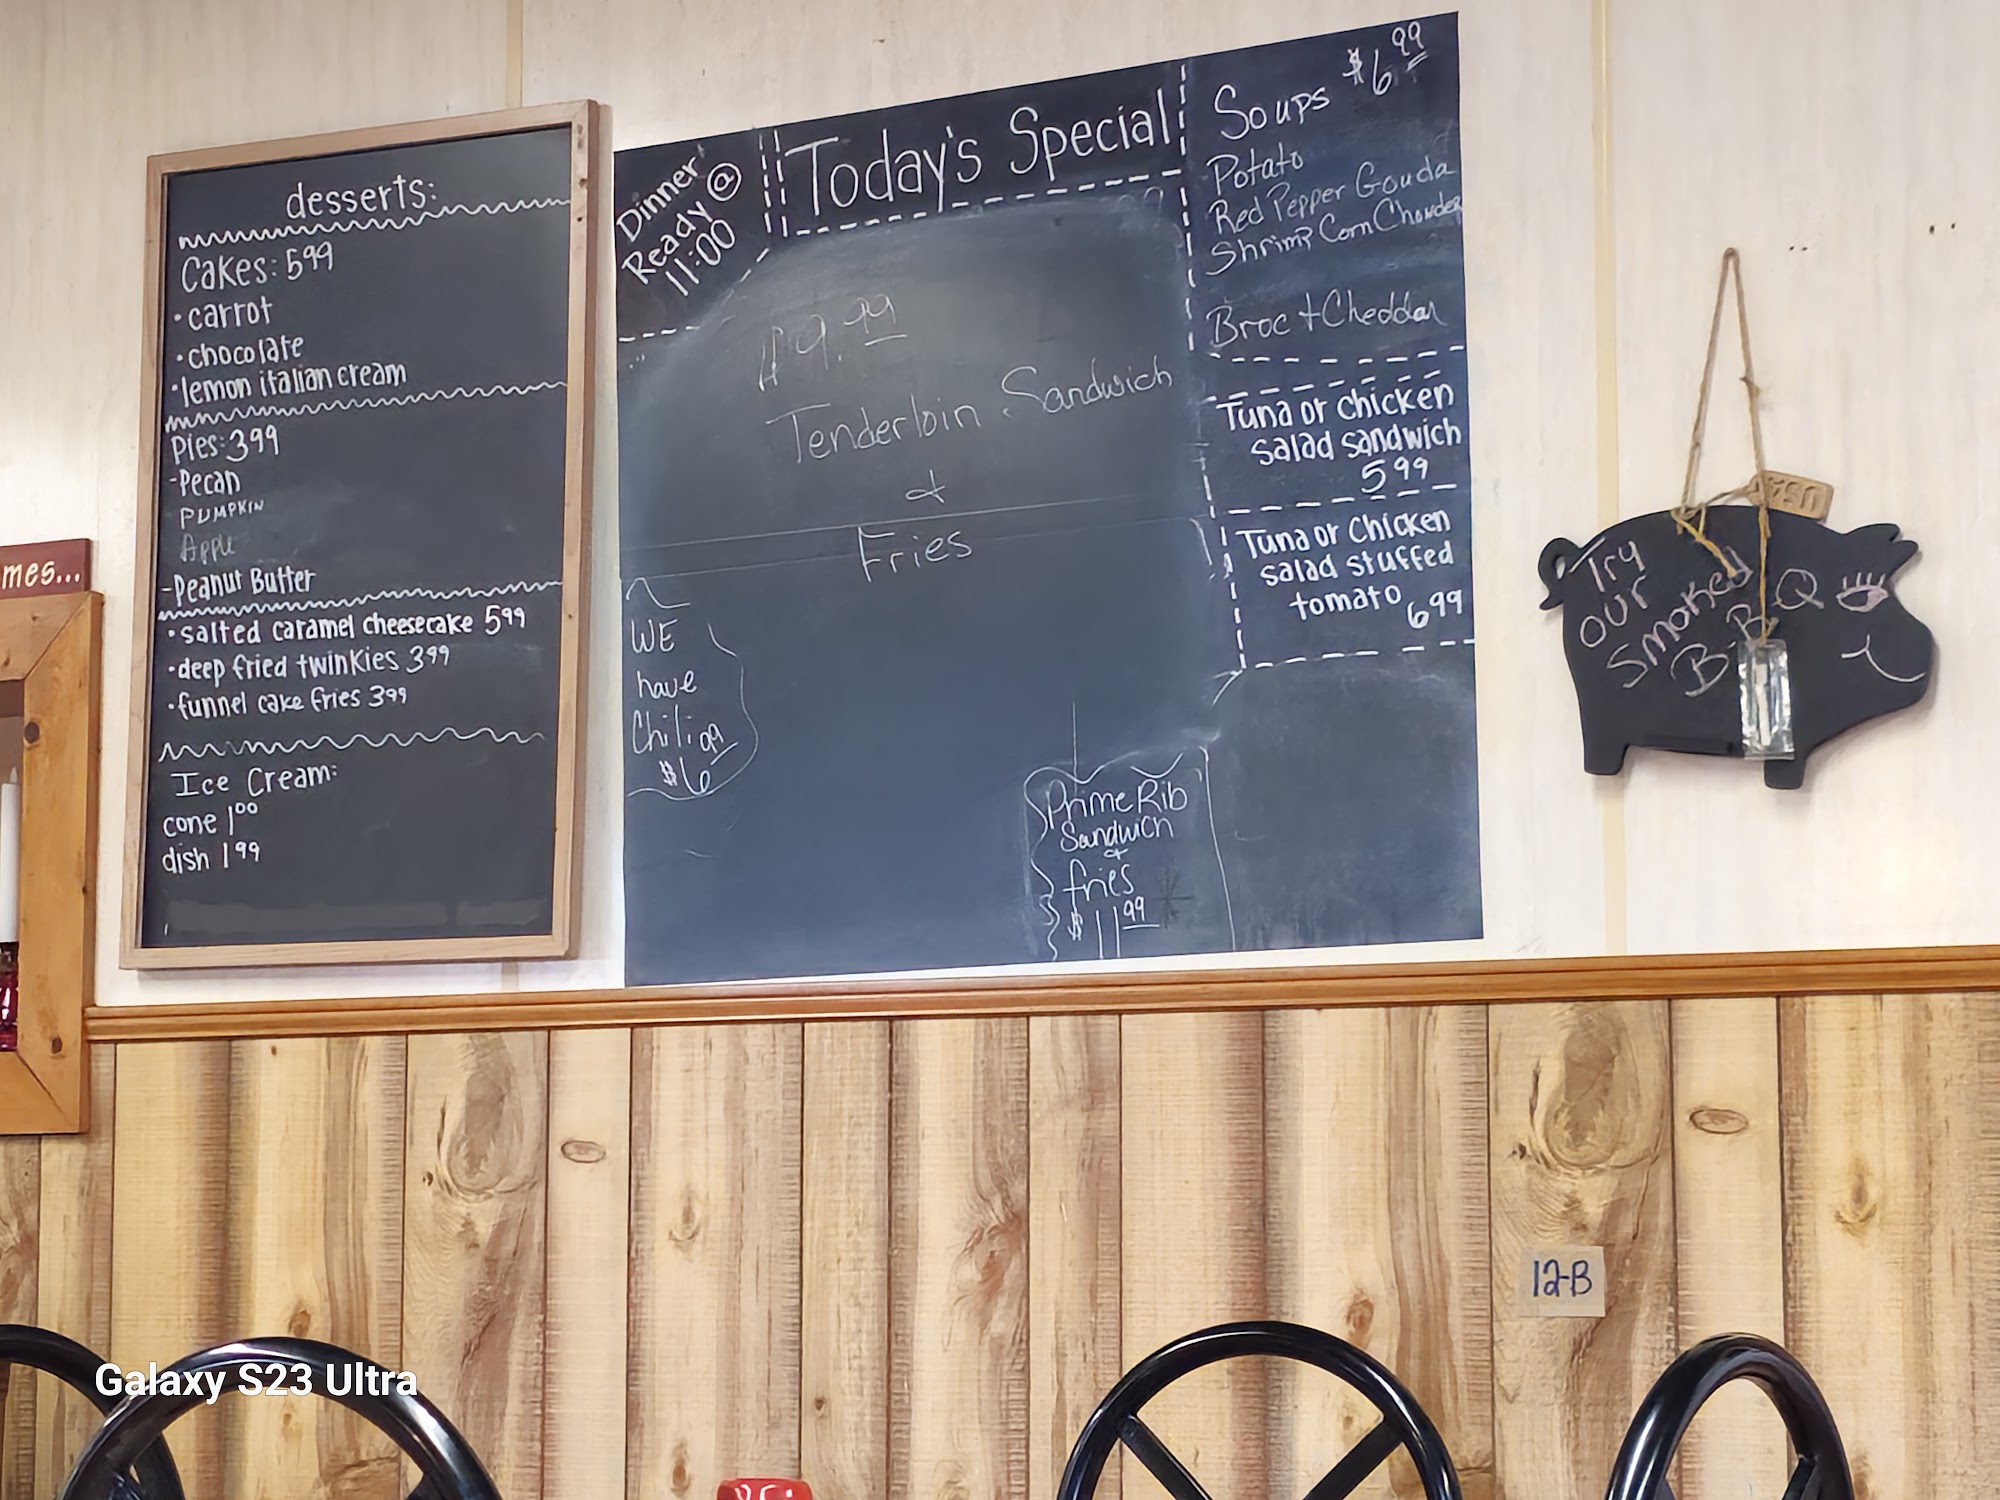 desserts:
Cakes: 5.99
• carrot
• chocolate
• lemon italian cream
Pies: 3.99
- Pecan
PUMPKIN
Apple
- Peanut Butter
• salted caramel cheesecake 5.99
• deep fried twinkies 3.99
• funnel cake fries 3.99
Ice Cream:
cone 1.00
dish 1.99
mes...
Dinner
Ready @
11:00
Today's Special
$9.99
Tenderloin Sandwich
&
Fries
WE
have
Chili
$6.99
Prime Rib
Sandwich
&
fries
$11.99
Soups $6.99
Potato
Red Pepper Gouda
Shrimp Corn Chowder
Broc + Cheddar
Tuna or chicken
salad sandwich
5.99
Tuna or Chicken
salad stuffed
tomato 6.99
Try
our
smoked
B-B-Q
12-B
Galaxy S23 Ultra